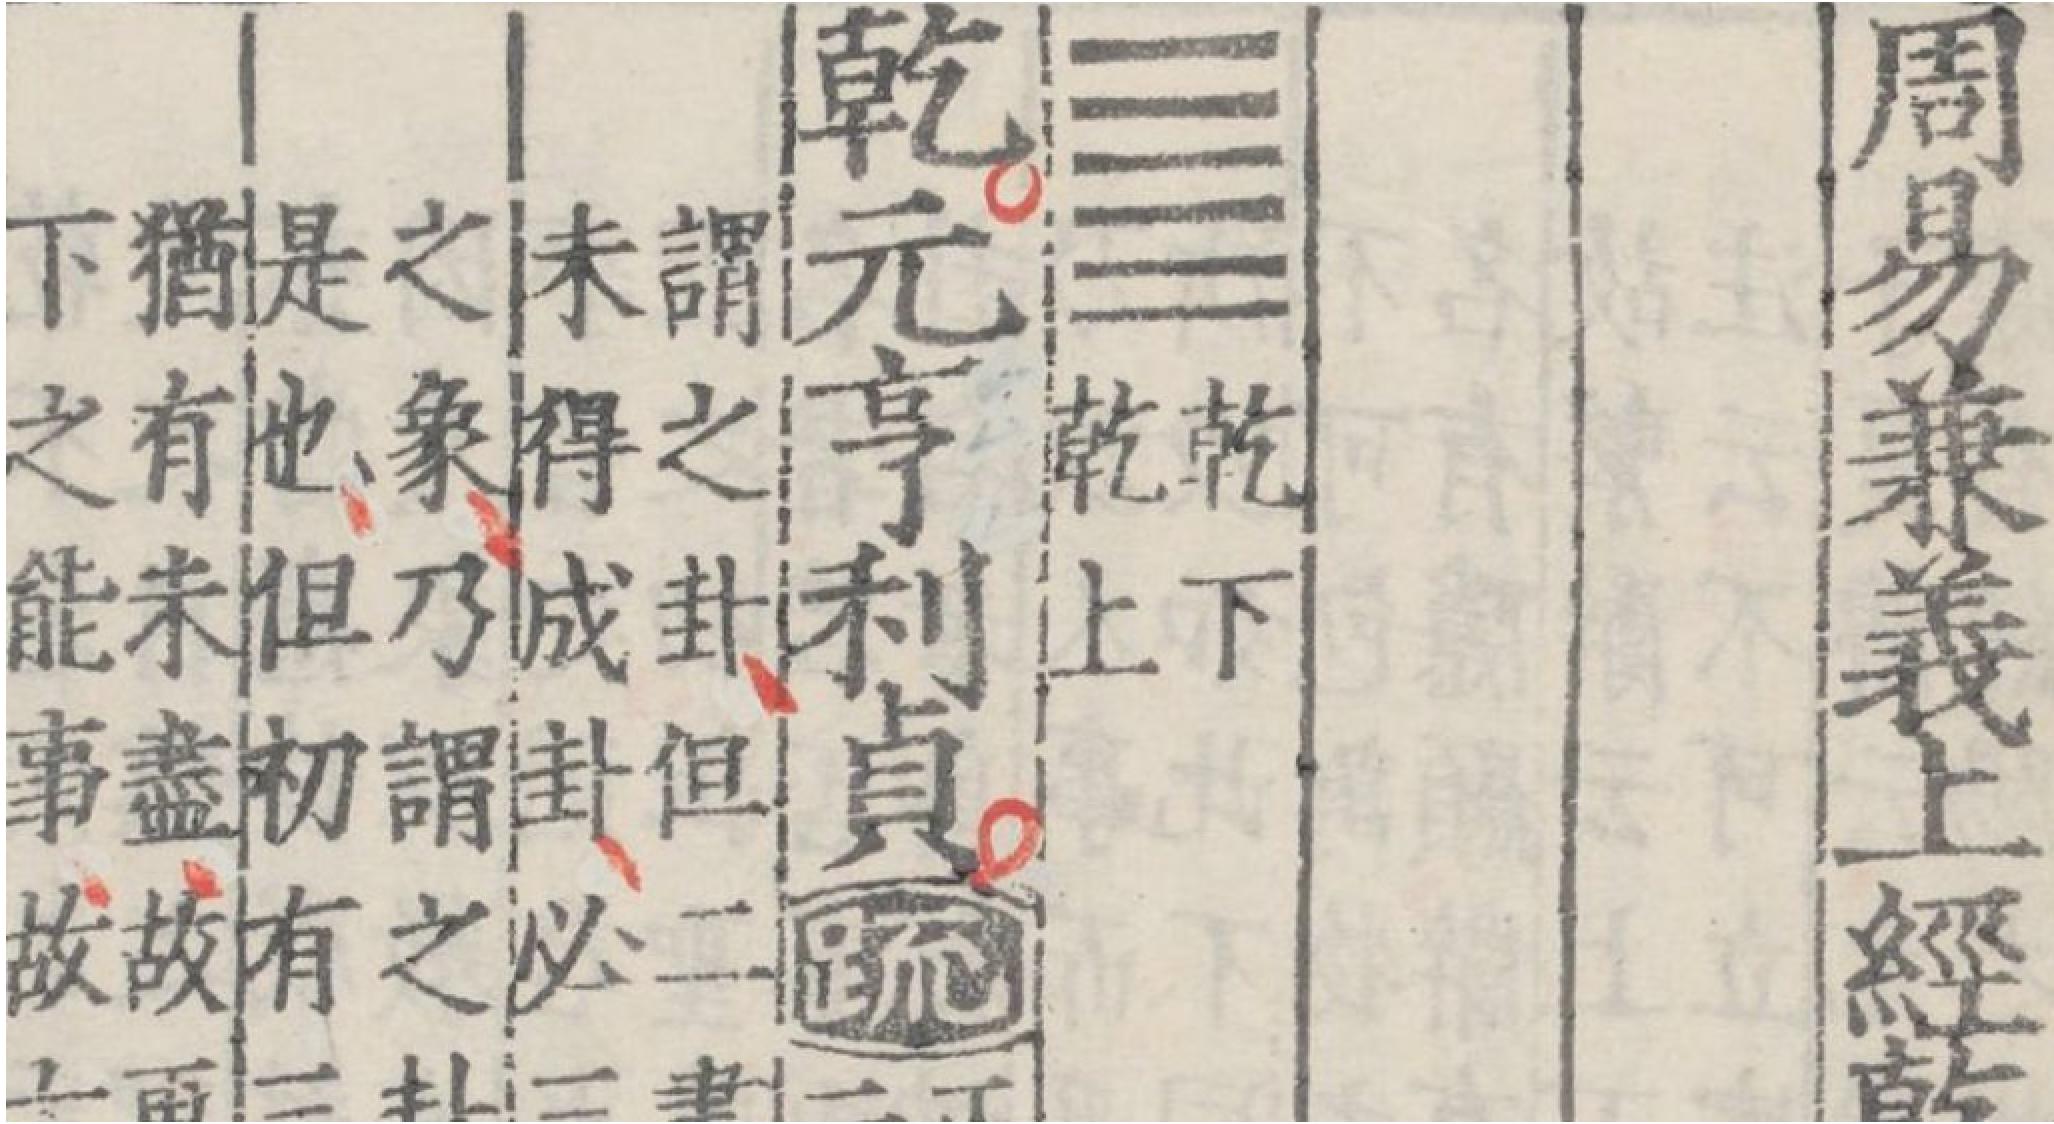 周易兼義上經乾
䷀
乾下
乾上
乾元亨利貞疏
正
謂之卦但二畫
未得成卦必三
之象乃謂之卦
是也但初有三
猶有未盡故更
下之能事故